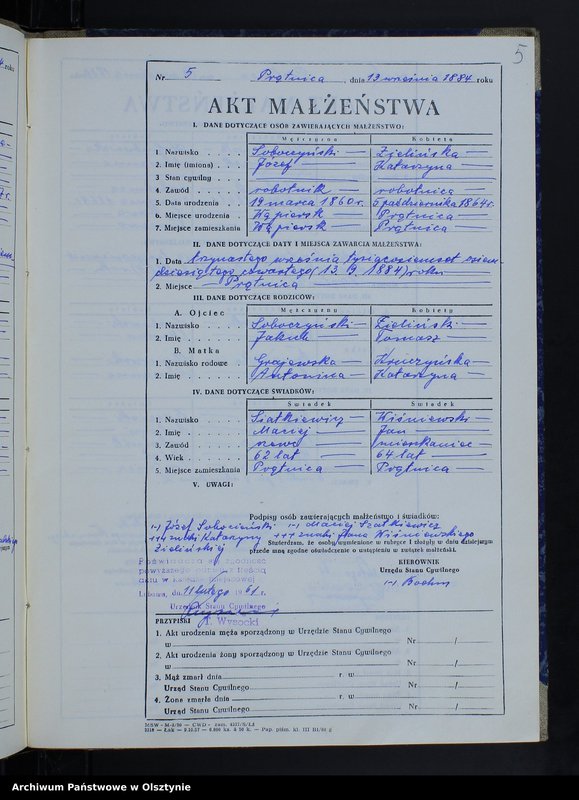 5
Nr 5 Prątnica, dnia 13 września 1884 roku
AKT MAŁŻEŃSTWA
I. DANE DOTYCZĄCE OSÓB ZAWIERAJĄCYCH MAŁŻEŃSTWO:
Mężczyzna Kobieta
1. Nazwisko Soboczyński Zielińska
2. Imię (imiona) Józef Katarzyna
3 Stan cywilny
4. Zawód robotnik robotnica
5. Data urodzenia 19 marca 1860 r. 6 października 1864 r.
6. Miejsce urodzenia Wąpiersk Prątnica
7. Miejsce zamieszkania Wąpiersk Prątnica
II. DANE DOTYCZĄCE DATY I MIEJSCA ZAWARCIA MAŁŻEŃSTWA:
1. Data trzynastego września tysiącosiemset osiem-
dziesiątego czwartego (13. 9. 1884) roku
2. Miejsce Prątnica
III. DANE DOTYCZĄCE RODZICÓW:
Mężczyzny Kobiety
A. Ojciec
1. Nazwisko Soboczyński Zieliński
2. Imię Jakub Tomasz
B. Matka
1. Nazwisko rodowe Grajewska
2. Imię Antonina Katarzyna
IV. DANE DOTYCZĄCE ŚWIADKÓW:
Świadek Świadek
1. Nazwisko Siatkiewicz Wiśniewski
2. Imię Maciej Jan
3. Zawód mieszkaniec
4. Wiek 62 lat 64 lat
5. Miejsce zamieszkania Prątnica Prątnica
V. UWAGI:
Podpisy osób zawierających małżeństwo i świadków:
(-) Józef (-) Maciej Szatkiewicz
+++ znaki Katarzyny +++ znaki Jana Wiśniewskiego
Zielińskiej
Stwierdzam, że osoby wymienione w rubryce I złożyły w dniu dzisiejszym
przede mną zgodne oświadczenie o wstąpieniu w związek małżeński.
Poświadcza się zgodność
powyższego odpisu z treścią
aktu w księdze miejscowej
KIEROWNIK
Urzędu Stanu Cywilnego
(-) Boehm
Lubawa, dn. 11 lutego 1961 r.
Urzędnik Stanu Cywilnego
T. Wysocki
PRZYPISKI
1. Akt urodzenia męża sporządzono w Urzędzie Stanu Cywilnego
w Nr /
2. Akt urodzenia żony sporządzono w Urzędzie Stanu Cywilnego
w Nr /
3. Mąż zmarł dnia r. w
Urząd Stanu Cywilnego Nr /
4. Żona zmarła dnia r. w
Urząd Stanu Cywilnego Nr /
Archiwum Państwowe w Olsztynie